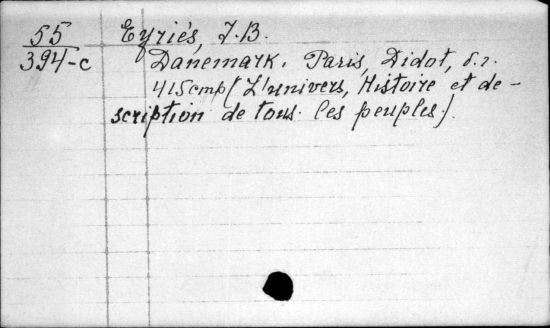 55
394-c
Eyriés, J.B.
Danemark. Paris, Didot, s.a.
415 стр (L'univers, Histoire et de-
scription de tous les peuples.)